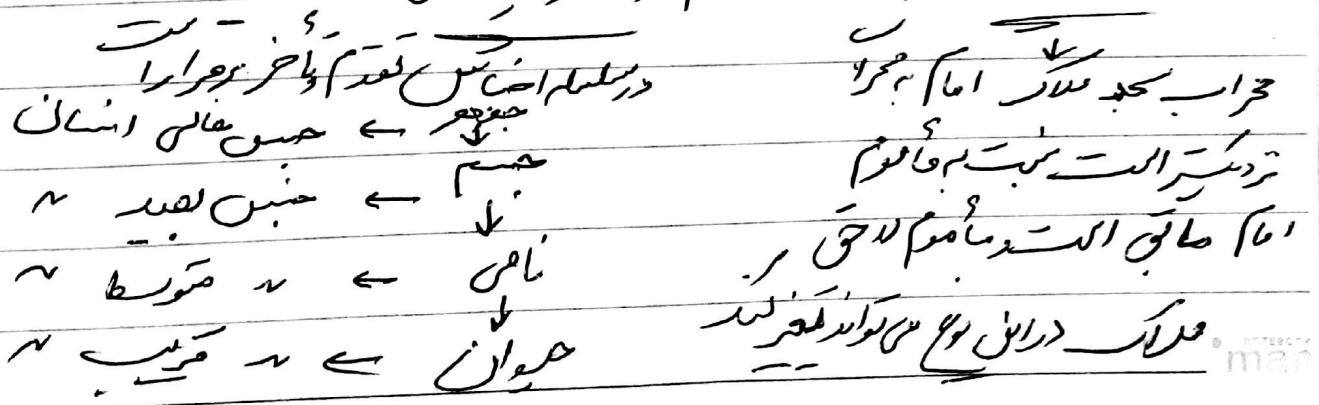 محراب مسجد ملاک امام به محراب
نزدیکتر است نسبت به مأموم
امام سابق است و مأموم لاحق
ملاک در این نوع می تواند تغییر کند
در سلسله اجناس تقدم و تأخر برقرار است
جوهر ← جنس عالی انسان
↓
جسم ← جنس بعید 〃
↓
نامی ← 〃 متوسط 〃
↓
حیوان ← 〃 قریب 〃